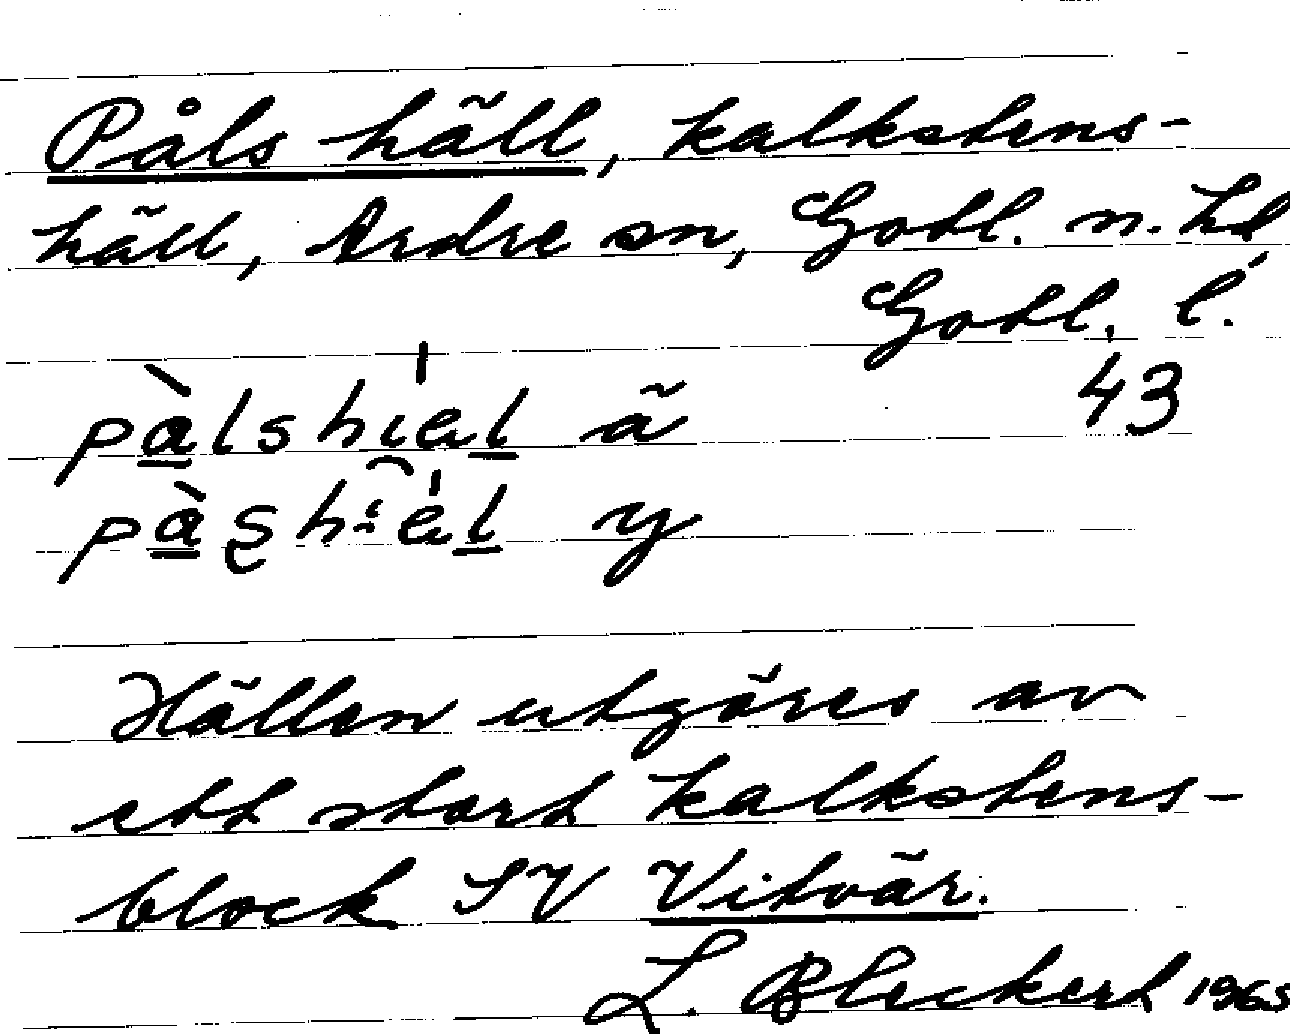 Påls häll, kalkstens-
häll, Ardre sn, Gotl. n. hd,
Gotl. l.
43
ä
y
Hällen utgöres av
ett stort kalkstens-
block SV Vitvär.
L. Bleckert 1965